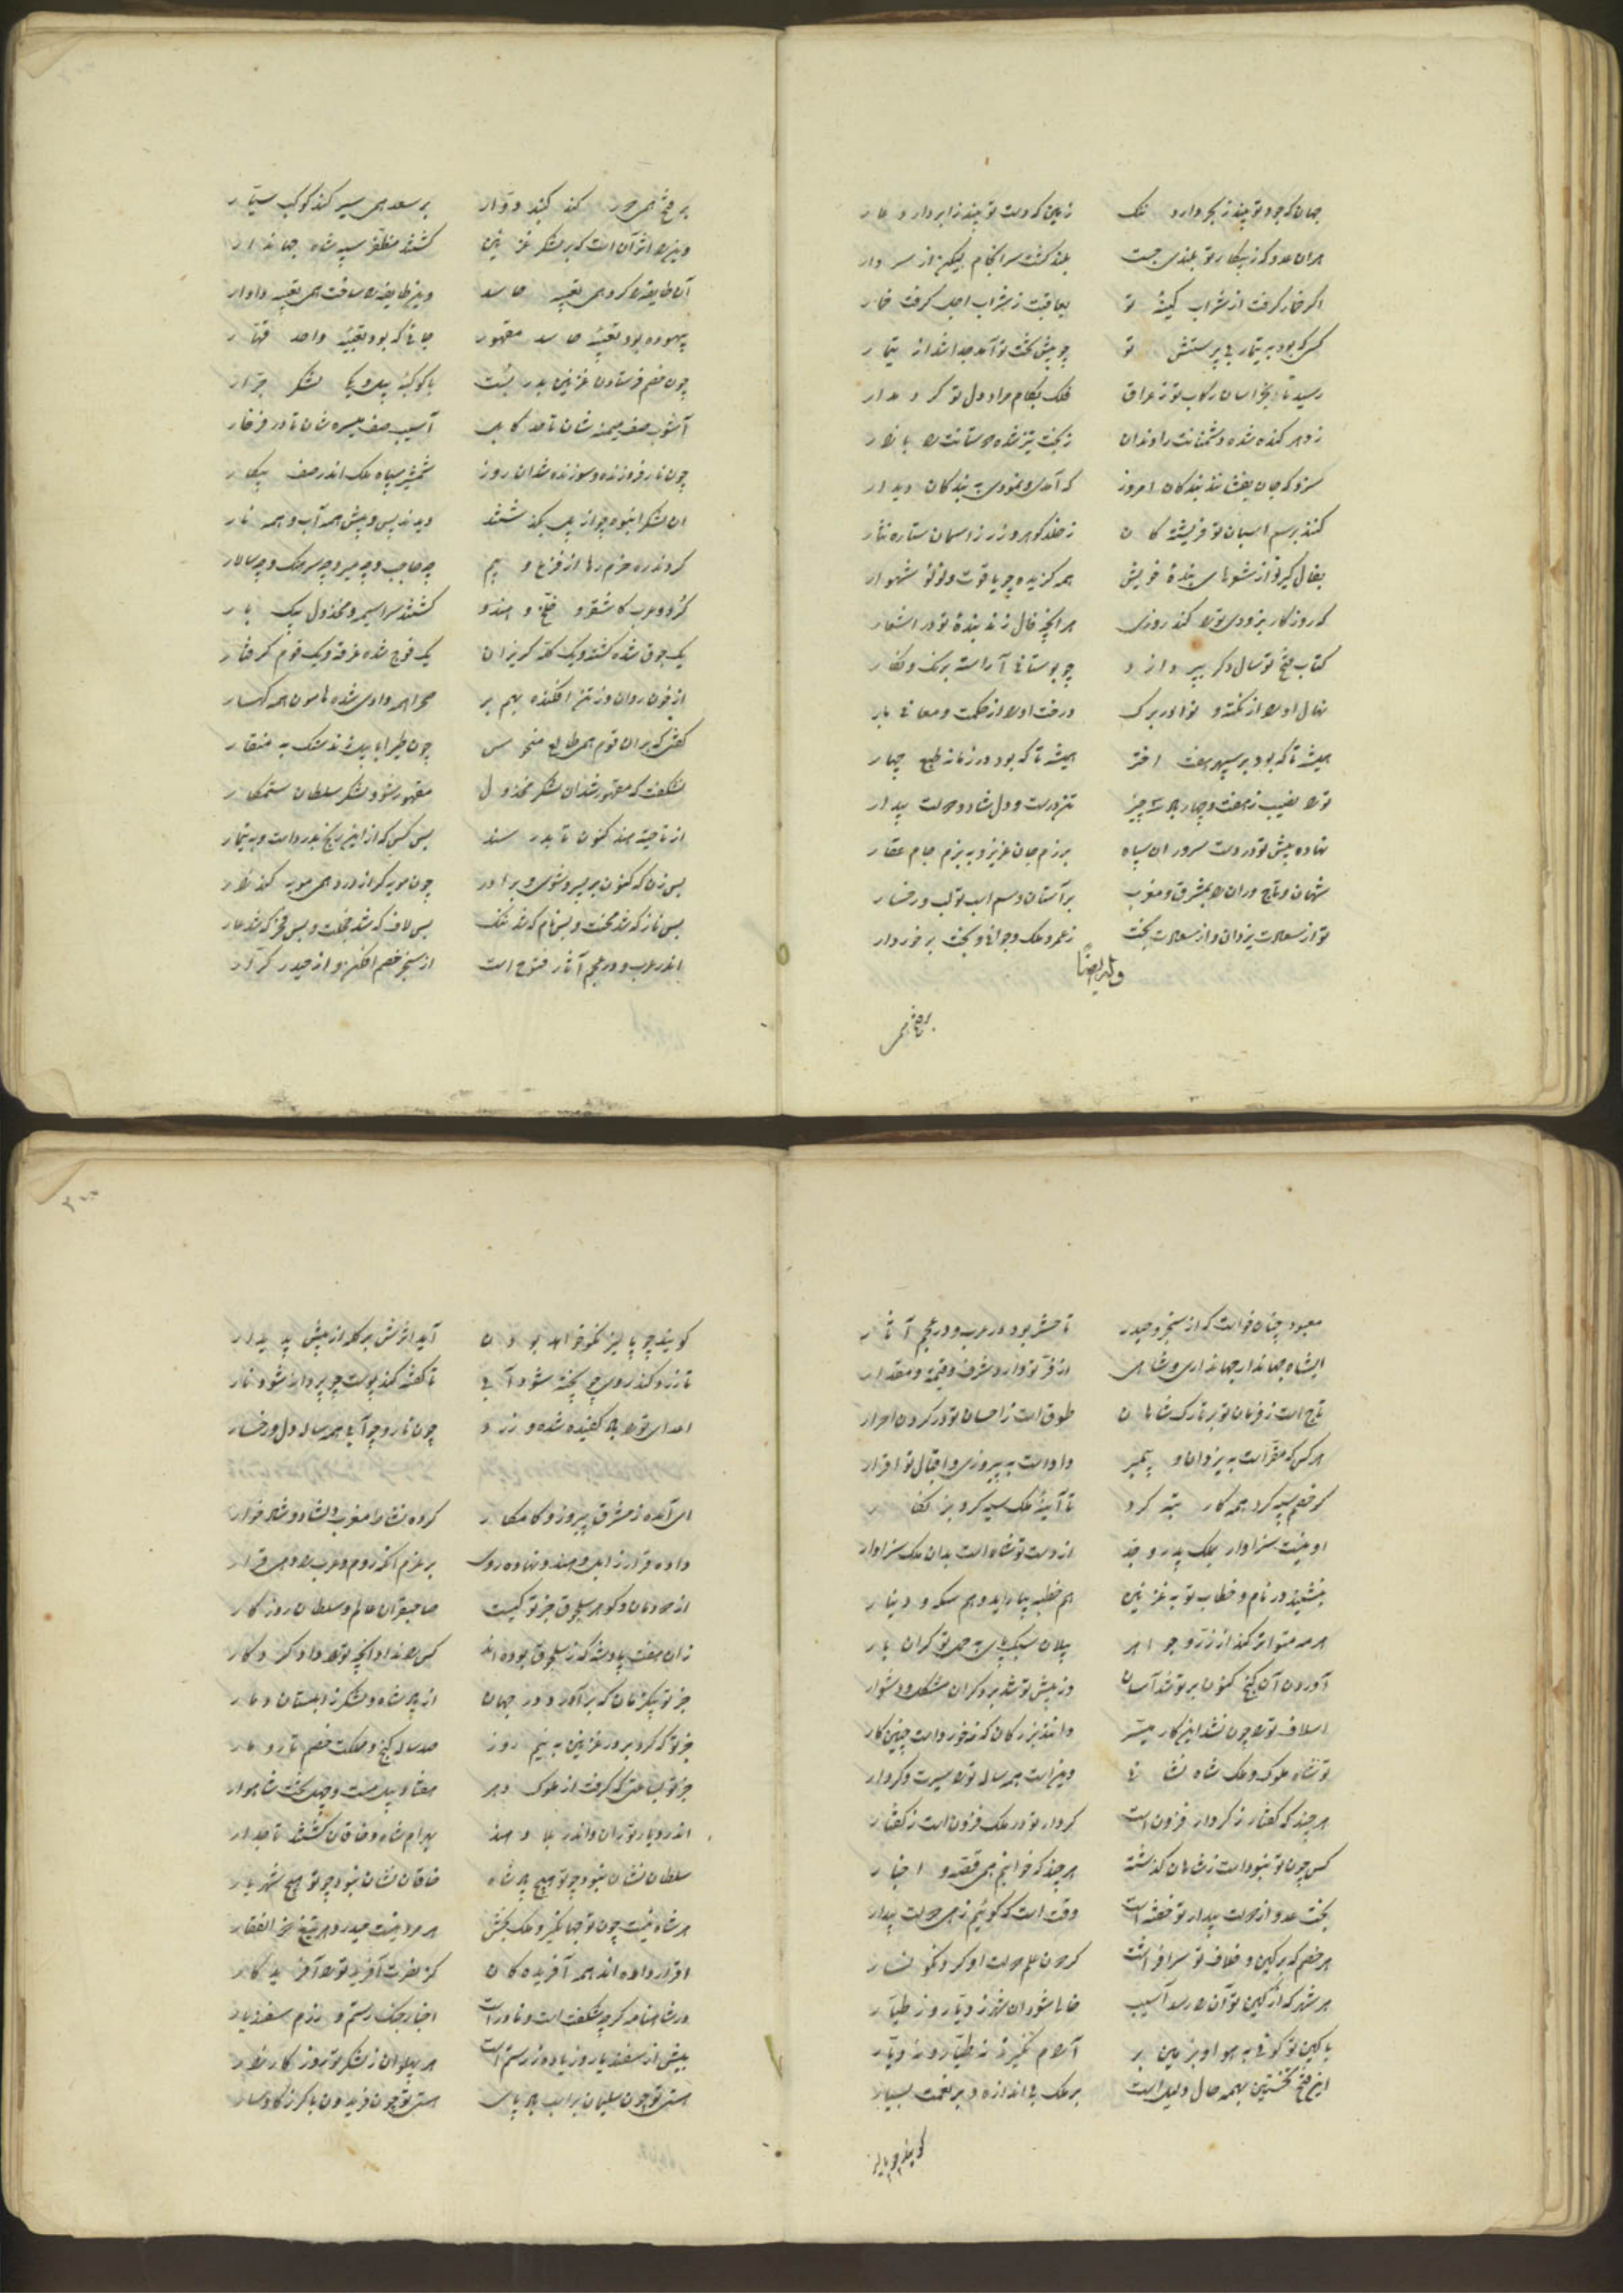 جهان که جود تو بیند ز بحر دارد ننگ زمین که دست تو بیند ز ابر دارد عار
هران عدو که ز پیکار تو بلندی جست بلند گشت سرانجام لیکن از سر دار
اگر خمار گرفت از شراب کینهٔ تو بعاقبت ز شراب اجل گرفت خمار
کسی که بود به تیمار بی پرستش تو چو پیش تخت تو آمد جدا شد از تیمار
رسید تا بخراسان رکاب تو ز عراق فلک بکام مراد دل تو کرد مدار
سزد که جان بفشانند بندگان امروز که آمدی و نمودی به بندگان دیدار
کنند بر سم اسبان تو فریشته کان ز خلد گوهر و زر ز آسمان ستاره نثار
بفال گیر تو از شعرهای بندهٔ خویش همه گزیده چو یاقوت و لولو شهوار
که روزگار بزودی ترا کند روزی هر آنچه فال زند بندهٔ تو در اشعار
کتاب فتح تو سال دگر بپردازد چو بوستانی آراسته برنگ و نگار
نهال او را از نکته و نوادر برگ درخت او را از حکمت و معانی بار
همیشه تا که بود بر سپهر هفت اختر همیشه تا که بود در زمانه طبع چهار
ترا نصیب ز هفت و چهار باد سه چیز تن درست و دل شاد و دولت بیدار
نهاده پیش تو در دست سروران سپاه برزم جان عزیز و به بزم جام عقار
شهان و تاج وران را بمشرق و مغرب بر آستان و سم اسب تو لب و رخسار
تو از سعادت یزدان و از سعادت بخت ز عمر و ملک و جوانی و بخت برخوردار
وله ایضاً
بر فتح همی
بر فتح همی دور کند گنبد دوار بر سعد همی سیر کند کوکب سیار
وین را اثر آن است که بر لشکر غزنین گشتند مظفر سپه شاه جهاندار
آن طایفه را کرد همی تعبیه حاسد وین طایفه را ساخت همی تعبیه دادار
بیهوده بود تعبیهٔ حاسد مقهور جائی که بود تعبیهٔ واحد قهار
چون خصم فرستادن غزنین بدر بست با کوکبهٔ پیل و یکی لشکر جرار
آشوب صف میمنه شان تا حد کابل آسیب صف میسره شان تا در فرخار
چون نار فروزنده و سوزنده شد آن روز شمشیر سپاه ملک اندر صف پیکار
آن لشکر انبوه چو از پل بگذشتند دیدند پس و پیش همه آب و همه نار
کردند ره حزم رها از فزع و بیم چه حاجب و چه میر و چه سرهنگ و چه سالار
کرد و عرب کاشغر و خلخ و هندو گشتند سراسیمه و مخذول بیک بار
یک جوق شده کشته و یک گله گریزان یک فوج شده غرقه و یک قوم گرفتار
از خون روان وز تن افکنده بهم بر صحرا همه وادی شده هامون همه کهسار
گفتی که بران قوم همی طالع منحوس چون طیر ابابیل زند سنگ به منقار
نشگفت که مقهور شد آن لشکر مخذول مقهور شود لشکر سلطان ستمکار
از ناحیت هند کنون تا بدر سند بس کس که ازین رنج بدرد است و به تیمار
بس زن که کنون بر پسر و شوی و برادر چون مویه گر از درد همی مویه کند زار
بس ناز که شد محنت و بس نام که شد ننگ بس لاف که شد خجلت و بس فخر که شد عار
اندر عرب و در عجم آثار فتوح است از سنجر خصم افکن و از حیدر کرار
معبود چنان خواست که از سنجر و حیدر تا حشر بود در عرب و در عجم آثار
ای شاه جهاندار جهانداری و شاهی از فر تو دارد شرف و قیمت و مقدار
تاج است ز فرمان تو بر تارک شاهان طوق است ز احسان تو در گردن احرار
هر کس که مقر است به یزدان و پیمبر داد است به پیروزی و اقبال تو اقرار
گر خصم سیه کرد همه کار تبه کرد تا آینهٔ ملک سیه کرد بزنگار
او نیست سزاوار بملک پدر و جد از دست تو شاه است بدان ملک سزاوار
بنشیند در نام و خطاب تو به غزنین هم خطبه بیاراید و هم سکه و دینار
هر مه متواتر کند از زر و جواهر پیلان سبک پای به حمل تو گران بار
آوردن آن گنج کنون بر تو شد آسان وز پیش تو شد بر دگران مشکل و دشوار
اسلاف ترا چون نشد این کار میسر دانند بزرگان که نه خورد است چنین کار
تو شاه ملوک و ملک شاه نشانی وین است همه ساله ترا سیرت و کردار
هر چند که گفتار ز کردار فزون است کردار تو در ملک فزون است ز گفتار
کس چون تو نبود است ز شاهان گذشته هر چند که خوانیم همی قصه و اخبار
بخت عدو از دولت بیدار تو خفته است وقت است که گوئیم زهی دولت بیدار
هر خصم که بر کین و خلاف تو سر افراشت گردون علم دولت او کرد نگونسار
هر شهر که از کین تو آن را رسد آسیب خالی شود آن شهر ز دیار و ز طیار
با کین تو گوئی به هوا و بزمین بر آرام نگیرد نه طیار و نه دیار
این فتح نخستین بهمه حال دلیل است بر ملک بی اندازه و بر نعمت بسیار
گویند چو پالیز
گویند چو پالیز نکو خواهد بودن آید اثرش بر گله از پیش پدیدار
تا زرد کند روی چو پخته شود آبی تا کفته کند پوست چو پردانه شود نار
اعدای ترا باد کفیده شده و زرد چون نار و چو آبی همه ساله دل و رخسار
ای آمده ز مشرق پیروز و کامکار کرده نشاط مغرب دلشاد و شادخوار
داده قرار زابل و هند و نهاده روی بر عزم آنکه روم و عرب را دهی قرار
از دودمان و گوهر سلجوق جز تو کیست صاحبقران عالم و سلطان روزگار
زان هفت پادشه که ز سلجوق بوده اند کس را نداد آنچه ترا داد کردگار
جز تو یکی زمان که برآورد در جهان از پادشاه و لشکر زابلستان دمار
جز تو که کرد بر در غزنین به نیم روز صد ساله گنج و مملکت خصم تار و مار
جز تو بساعتی که گرفت از ملوک دهر هفتاد پیل مست و چهل تخت شاهوار
اندر دیار توران و اندر بلاد هند بهرام شاه و خاقان گشتند تاجدار
سلطان نشان نبود چو تو هیچ پادشاه خاقان نشان نبود چو تو هیچ شهریار
هر شاه نیست چون تو جهانگیر و ملک بخش هر مرد نیست حیدر و هر تیغ ذوالفقار
اقرار داده اند همه آفریدگان کز نصرت آفرید ترا آفریدگار
در شاهنامه گرچه شگفت است و نادر است اخبار جنگ رستم و رزم سفندیار
بیش از سفندیار و زیاده ز رستم است هر پهلوان ز لشکر تو روز کارزار
هستی تو چون سلیمان بر اسب بادپای هستی تو چون فریدون با گرز گاوسار